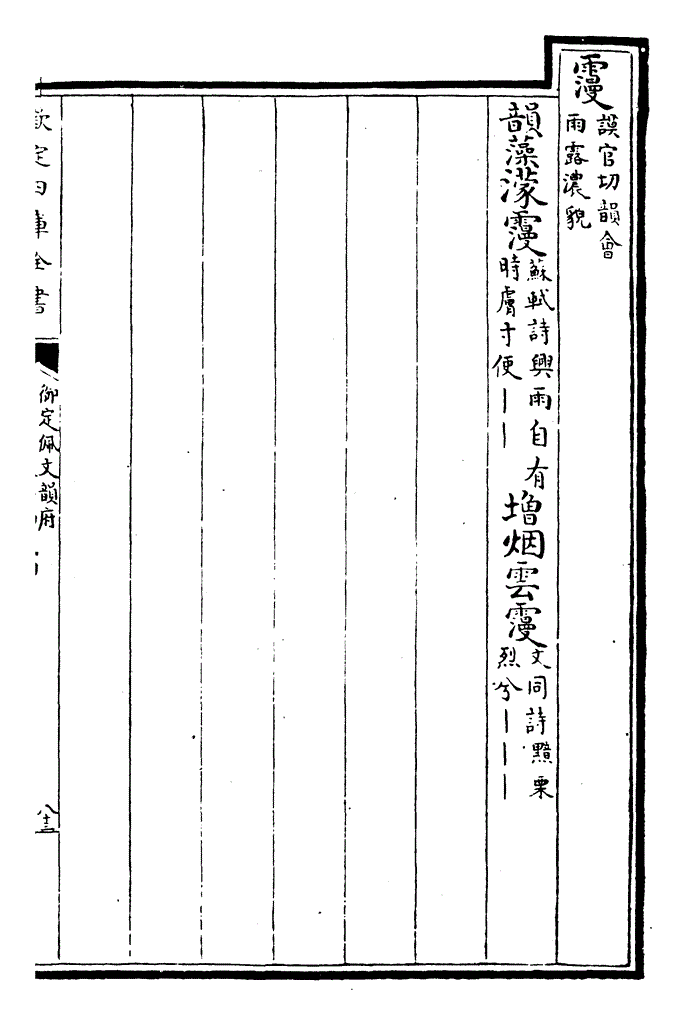 䨲謨官切韻會雨露濃貌
韻藻濛䨲蘇軾詩興雨自有時膚寸便||增烟雲䨲文同詩黯栗烈兮|||
欽定四庫全書
御定佩文韻府
八十三